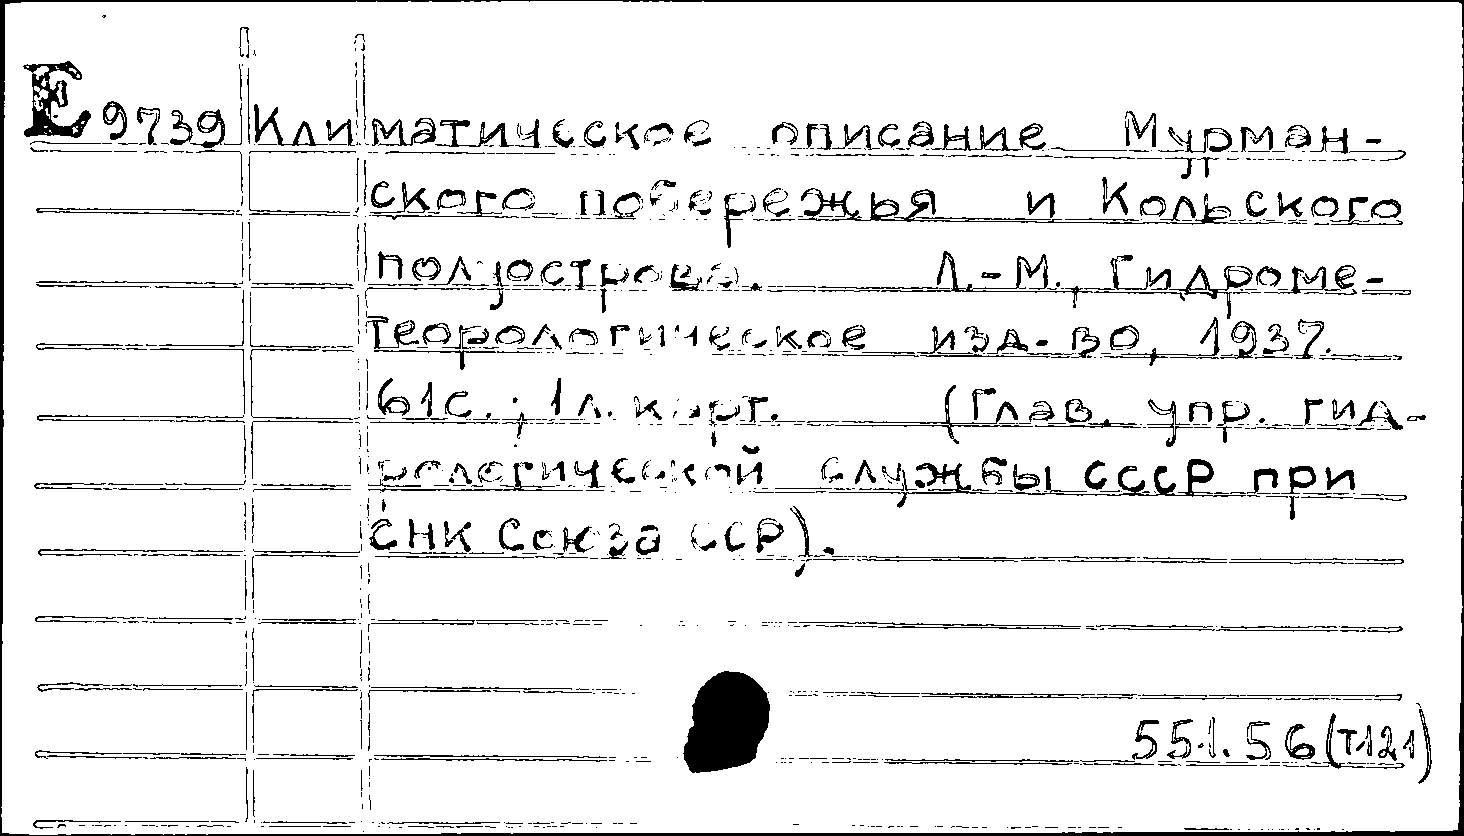 Е 9739 Климатическое описание Мурман-
ского побережья и Кольского
полуострова. Л.-М., Гидроме-
теорологическое изд-во, 1937.
61с.; 1л. карт. (Глав. упр. гид-
рологической службы СССР при
СНК Союза ССР).
551.56(Т121)